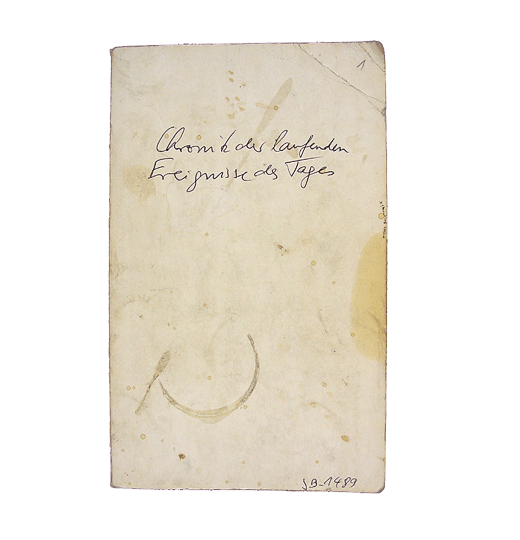 1
Chronik der laufenden
Ereignisse des Tages
SB-1489